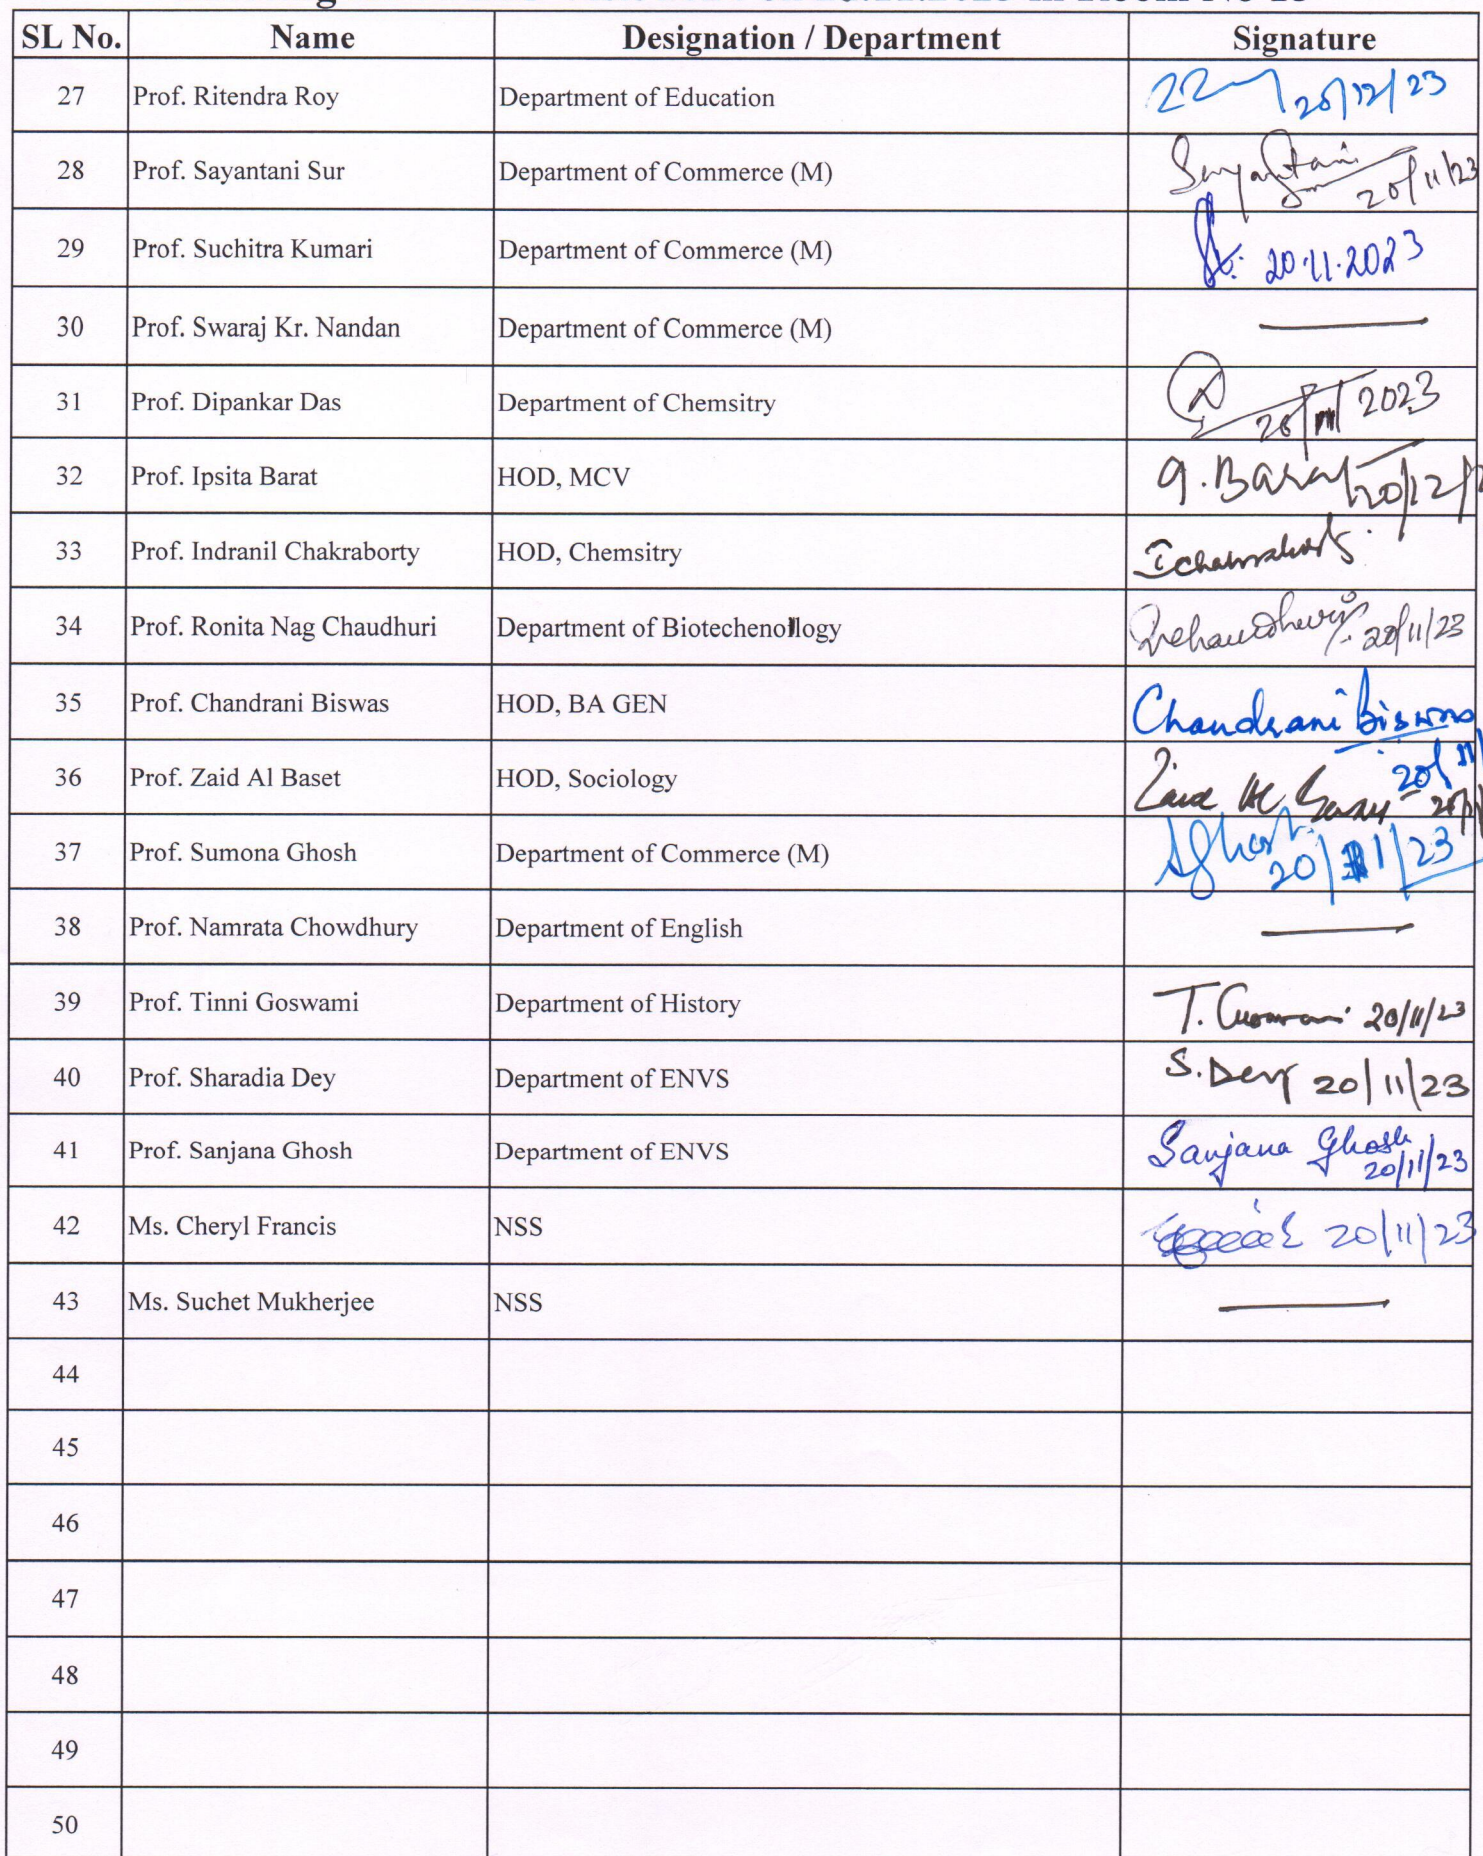 in Room No
SL No. Name Designation / Department Signature
27 Prof. Ritendra Roy Department of Education 20/12/23
28 Prof. Sayantani Sur Department of Commerce (M) Sayantani 20/11/23
29 Prof. Suchitra Kumari Department of Commerce (M) 20.11.2023
30 Prof. Swaraj Kr. Nandan Department of Commerce (M) —
31 Prof. Dipankar Das Department of Chemsitry 20/11/2023
32 Prof. Ipsita Barat HOD, MCV I. Barat 20/12/
33 Prof. Indranil Chakraborty HOD, Chemsitry IChakraborty
34 Prof. Ronita Nag Chaudhuri Department of Biotechenollogy 20/11/23
35 Prof. Chandrani Biswas HOD, BA GEN Chandrani Biswas 20/11
36 Prof. Zaid Al Baset HOD, Sociology Zaid Al Baset 20/11
37 Prof. Sumona Ghosh Department of Commerce (M) SGhosh 20/11/23
38 Prof. Namrata Chowdhury Department of English —
39 Prof. Tinni Goswami Department of History T. Goswami 20/11/23
40 Prof. Sharadia Dey Department of ENVS S. Dey 20/11/23
41 Prof. Sanjana Ghosh Department of ENVS Sanjana Ghosh 20/11/23
42 Ms. Cheryl Francis NSS 20/11/23
43 Ms. Suchet Mukherjee NSS —
44
45
46
47
48
49
50